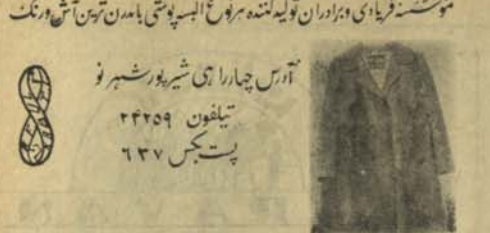 موسسه فریادی وبرادران تولیدکننده هرنوع البسه پوستی بامدرن ترین آش ورنگ
آدرس چهارراهی شیرپور شهر نو
تیلفون ۲۴۲۵۹
پست بکس ۶۳۷